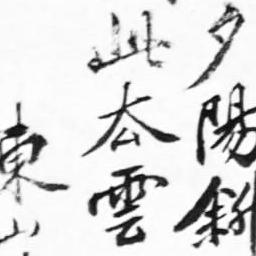 夕陽斜
此太雲
東山